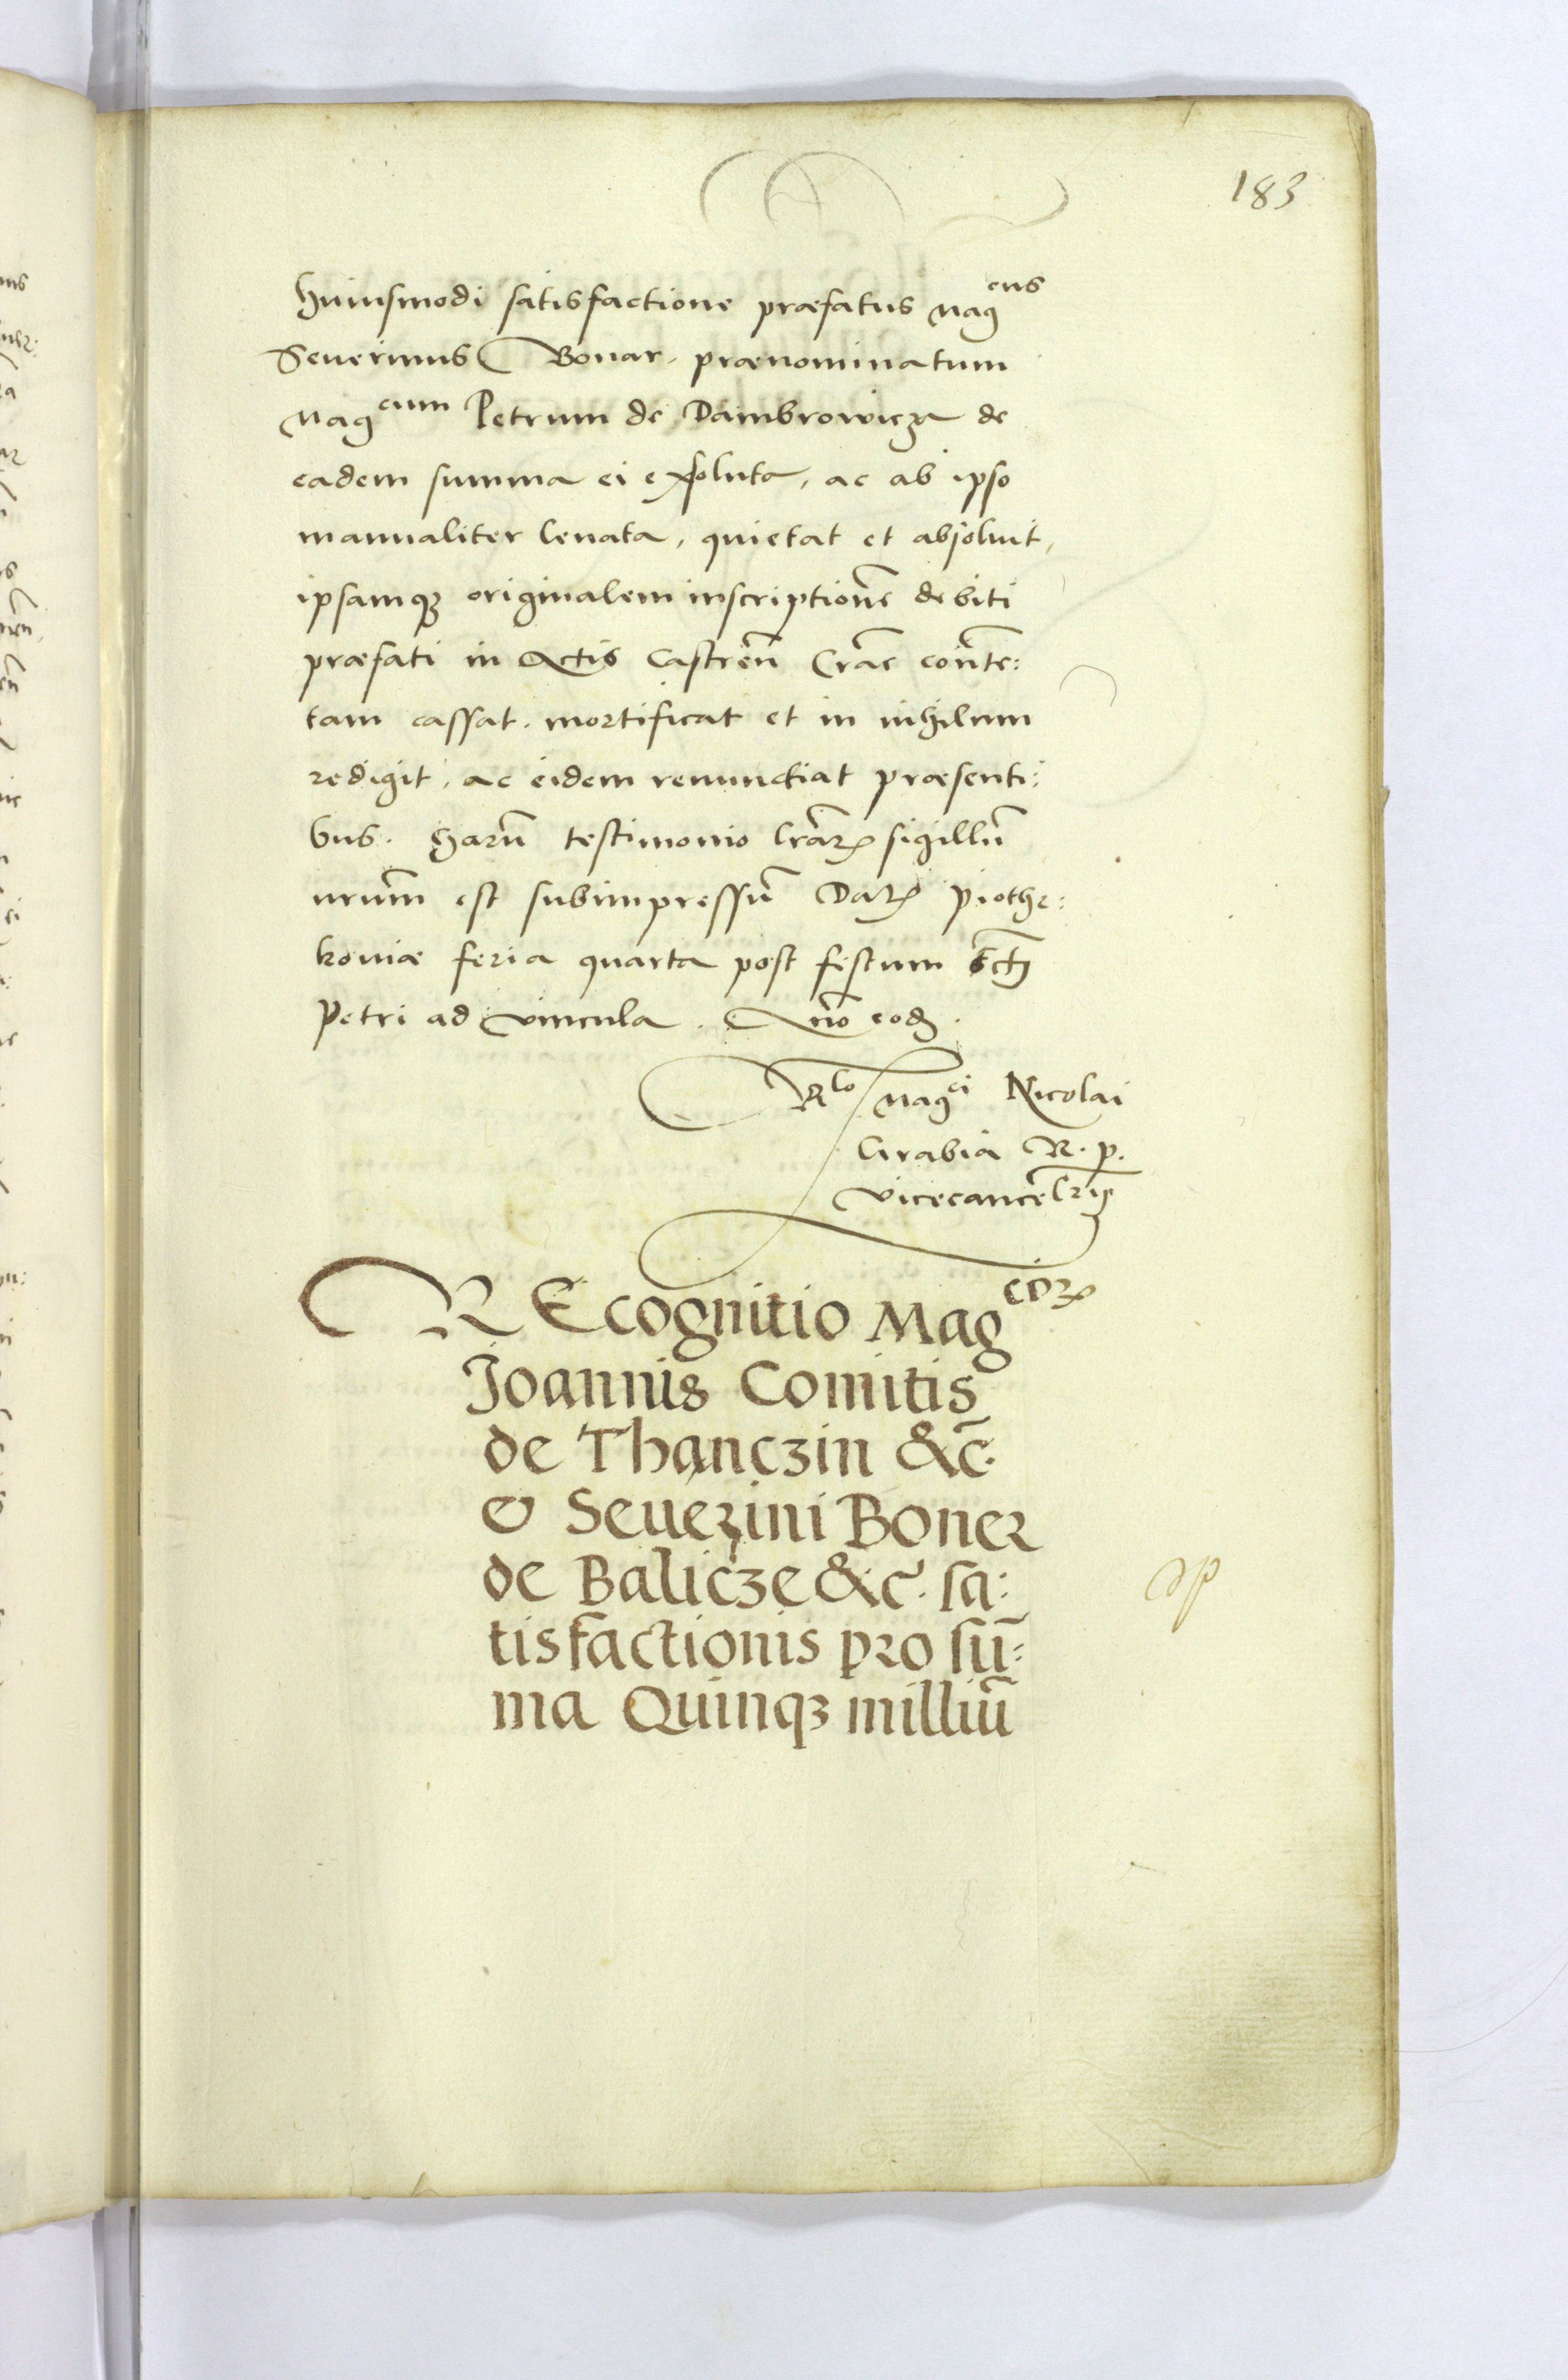 183
huiusmodi satisfactione præfatus mag^cus
Seuerinus Bonar. prænominatum
mag^cum Petrum de Dambrowicza de
eadem summa ei exsoluta, ac ab ipso
manualiter leuata, quietat et absoluit,
ipsamqꝫ originalem inscriptionē debiti
præfati in Actis Castreñ Crac̄ conte͂:
tam cassat. mortificat et in nihilum
redigit, ac eidem renunctiat præsenti:
bus. harū testimonio lrāꝝ sigillū
nrum̄ est subimpressū Datꝝ Piothr:
koviæ feria quarta post festum Scti
Petri ad vincula. Año eod.
R^lo mag^ci Nicolai
Grabia R. p.
vicecancellrij
REcognitio Mag^coꝝ
Joannis Comitis
de Thanczin &c̄.
et Seuerini Boner
de Balicze &c̄. sa:
tisfactionis pro sū:
ma Quinqꝫ milliū